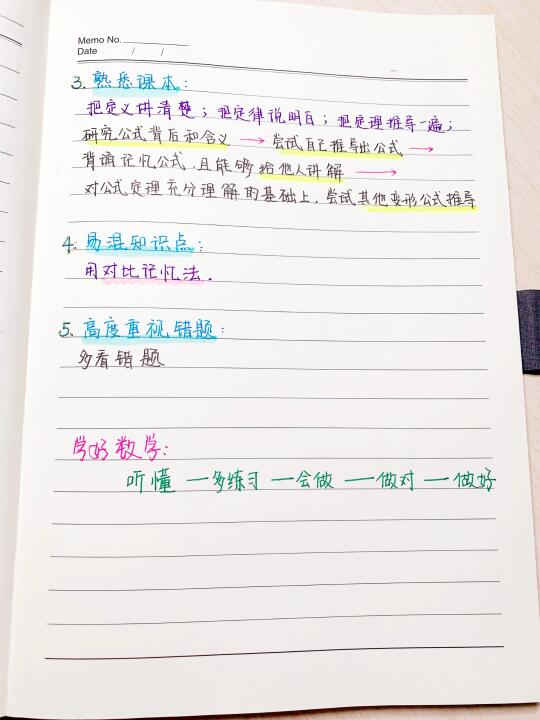 Memo No.
Date / /
3. 熟悉课本:
把定义讲清楚; 把定律说明白; 把定理推导一遍;
研究公式背后和含义 → 尝试自己推导出公式 →
背诵记忆公式, 且能够给他人讲解 →
对公式定理充分理解的基础上, 尝试其他变形公式推导
4. 易混知识点:
用对比记忆法.
5. 高度重视错题:
多看错题
学好数学:
听懂 — 多练习 — 会做 — 做对 — 做好